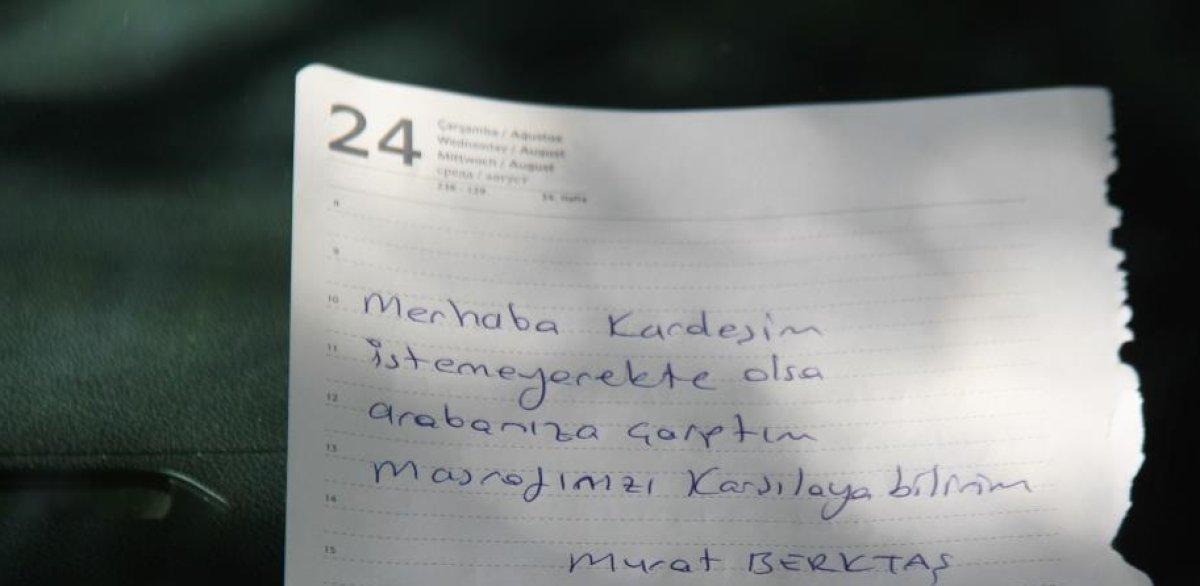 24
Çarşamba / Ağustos
Wednesday / August
Mittwoch / August
среда / август
236 - 129
34. Hafta
8
9
10
Merhaba Kardeşim
11
istemeyerekte olsa
12
arabanıza çarptım
13
Masrafınızı Karşılaya bilirim
14
15
Murat BERKTAŞ